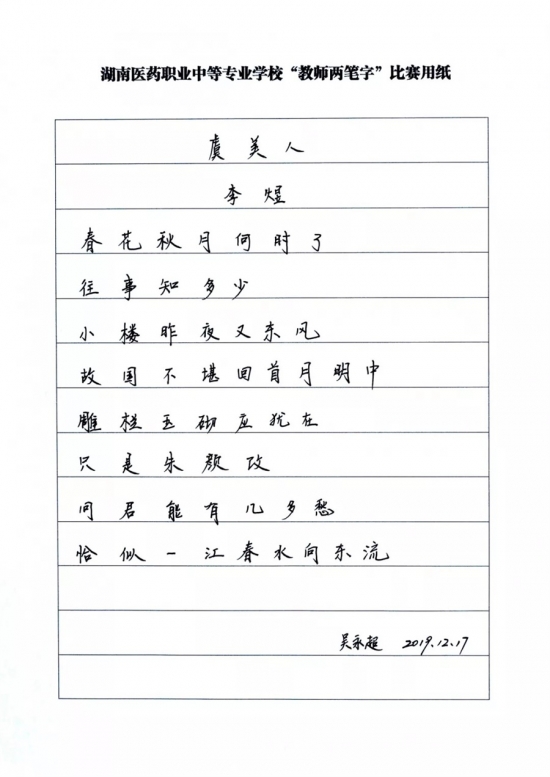 湖南医药职业中等专业学校“教师两笔字”比赛用纸
虞美人
李煜
春花秋月何时了
往事知多少
小楼昨夜又东风
故国不堪回首月明中
雕栏玉砌应犹在
只是朱颜改
问君能有几多愁
恰似一江春水向东流
吴永超 2019.12.17